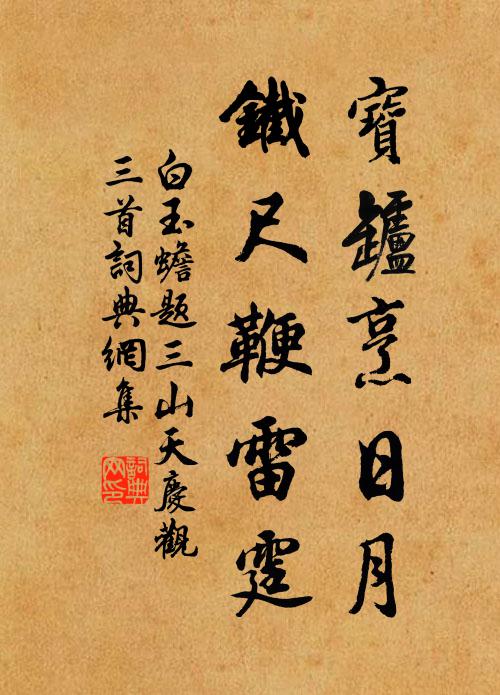 寶鑪烹日月
鐵尺鞭雷霆
白玉蟾題三山天慶觀
三首詞典網集
詞典网印